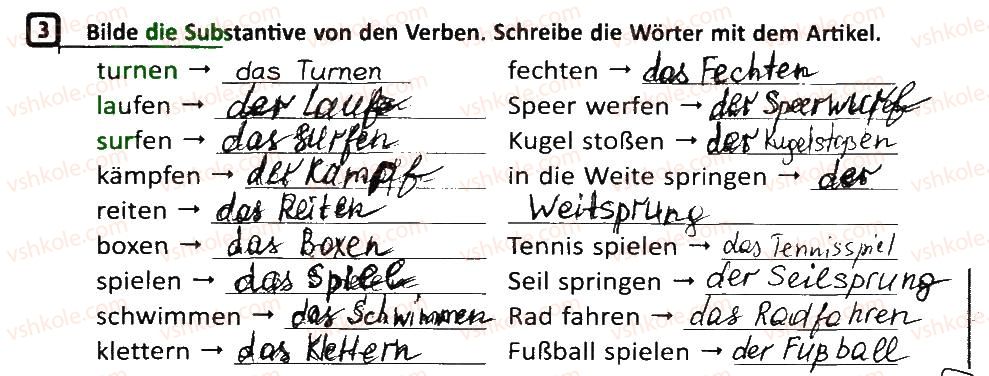 3 Bilde die Substantive von den Verben. Schreibe die Wörter mit dem Artikel.
turnen → das Turnen
laufen → der Lauf
surfen → das Surfen
kämpfen → der Kampf
reiten → das Reiten
boxen → das Boxen
spielen → das Spiel
schwimmen → das Schwimmen
klettern → das Klettern
fechten → das Fechten
Speer werfen → der Speerwurf
Kugel stoßen → der Kugelstoßen
in die Weite springen → der
Weitsprung
Tennis spielen → das Tennisspiel
Seil springen → der Seilsprung
Rad fahren → das Radfahren
Fußball spielen → der Fußball
vshkole.com